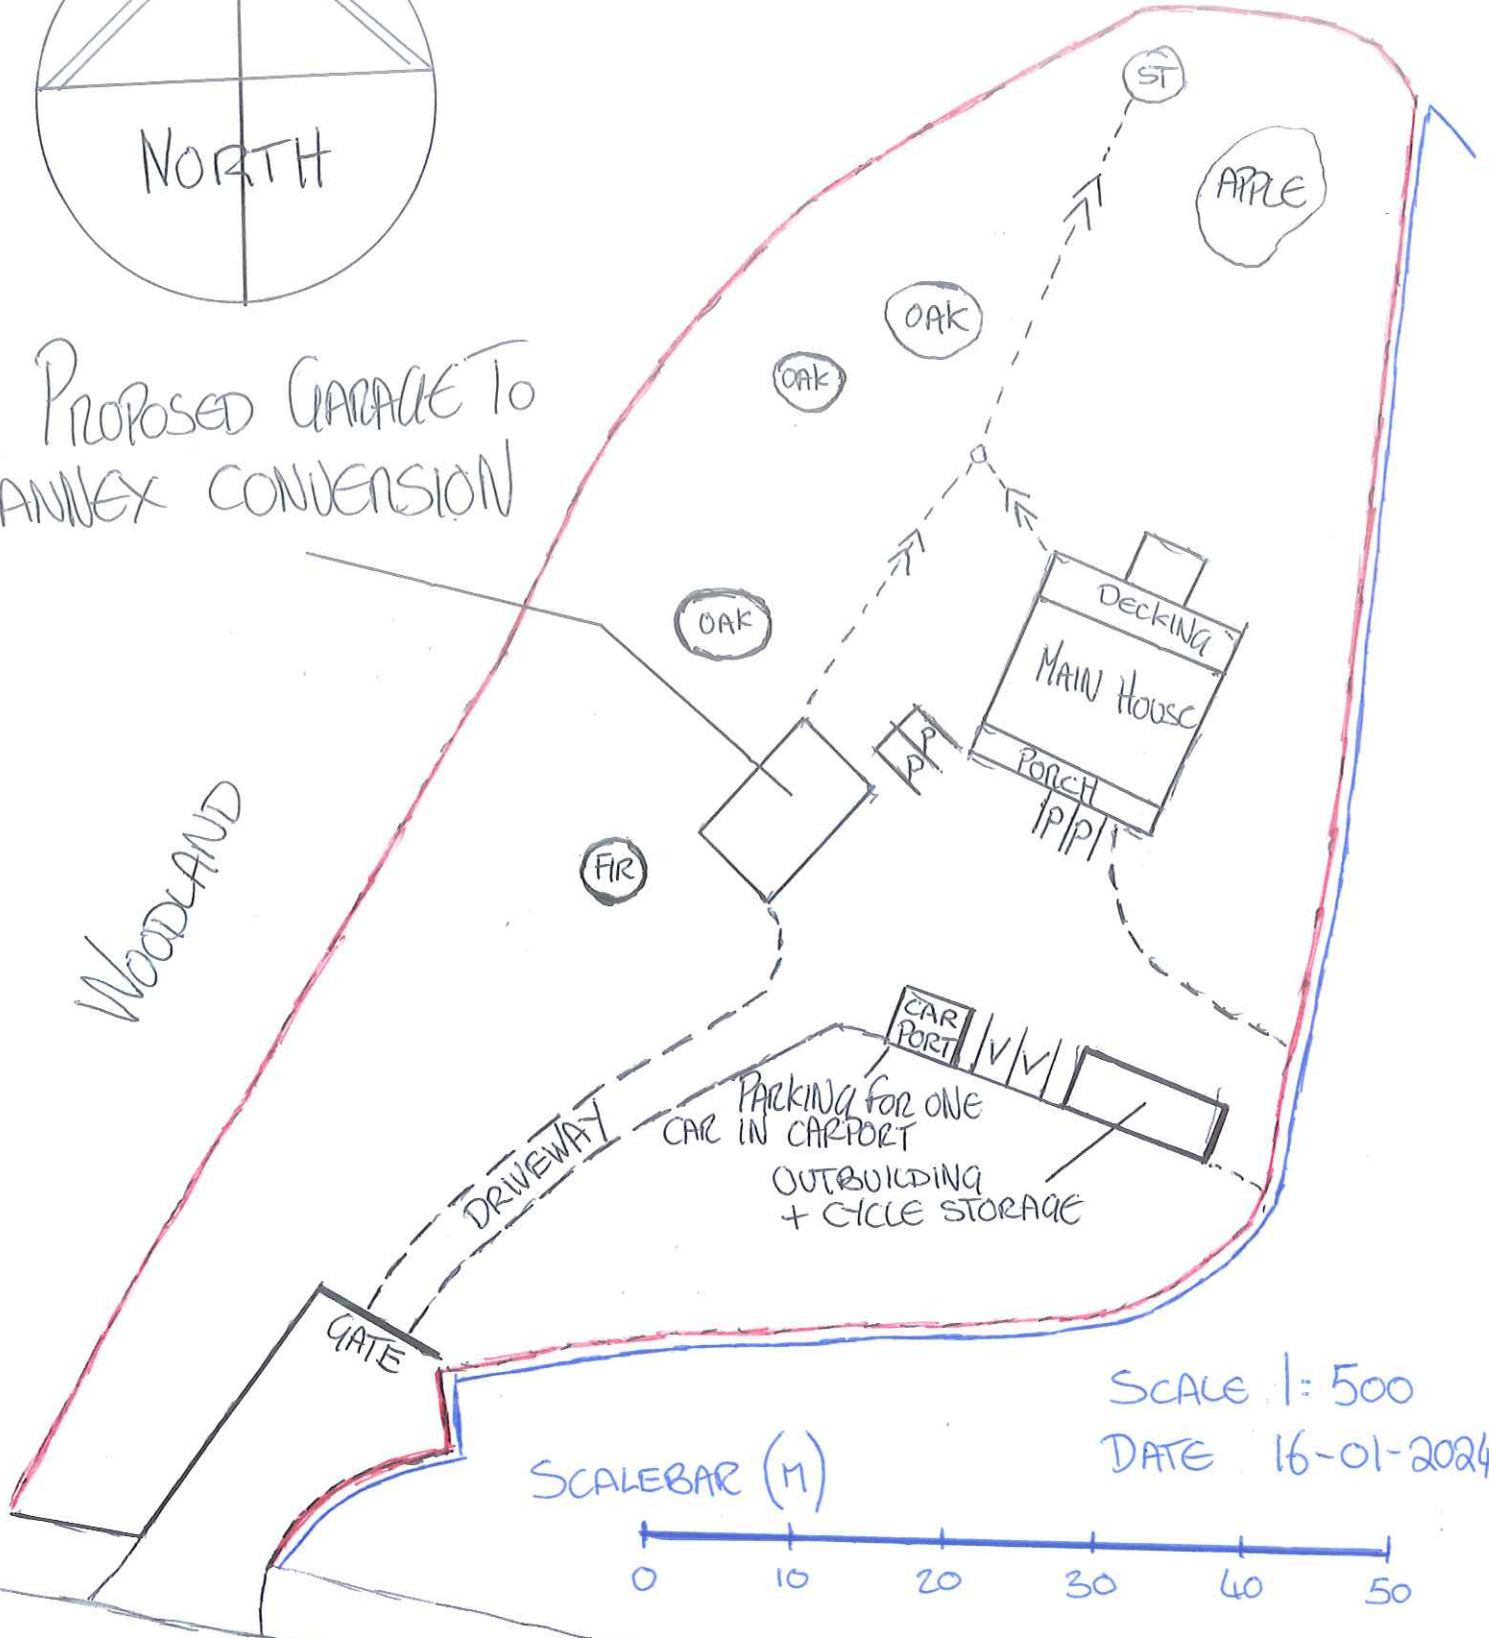 NORTH
PROPOSED GARAGE TO
ANNEX CONVERSION
ST
APPLE
OAK
OAK
OAK
DECKING
MAIN HOUSE
PORCH
P
P
P
P
FIR
WOODLAND
CAR
PORT
V
V
PARKING FOR ONE
CAR IN CARPORT
OUTBUILDING
+ CYCLE STORAGE
DRIVEWAY
GATE
SCALE 1:500
DATE 16-01-2024
SCALEBAR (M)
0 10 20 30 40 50